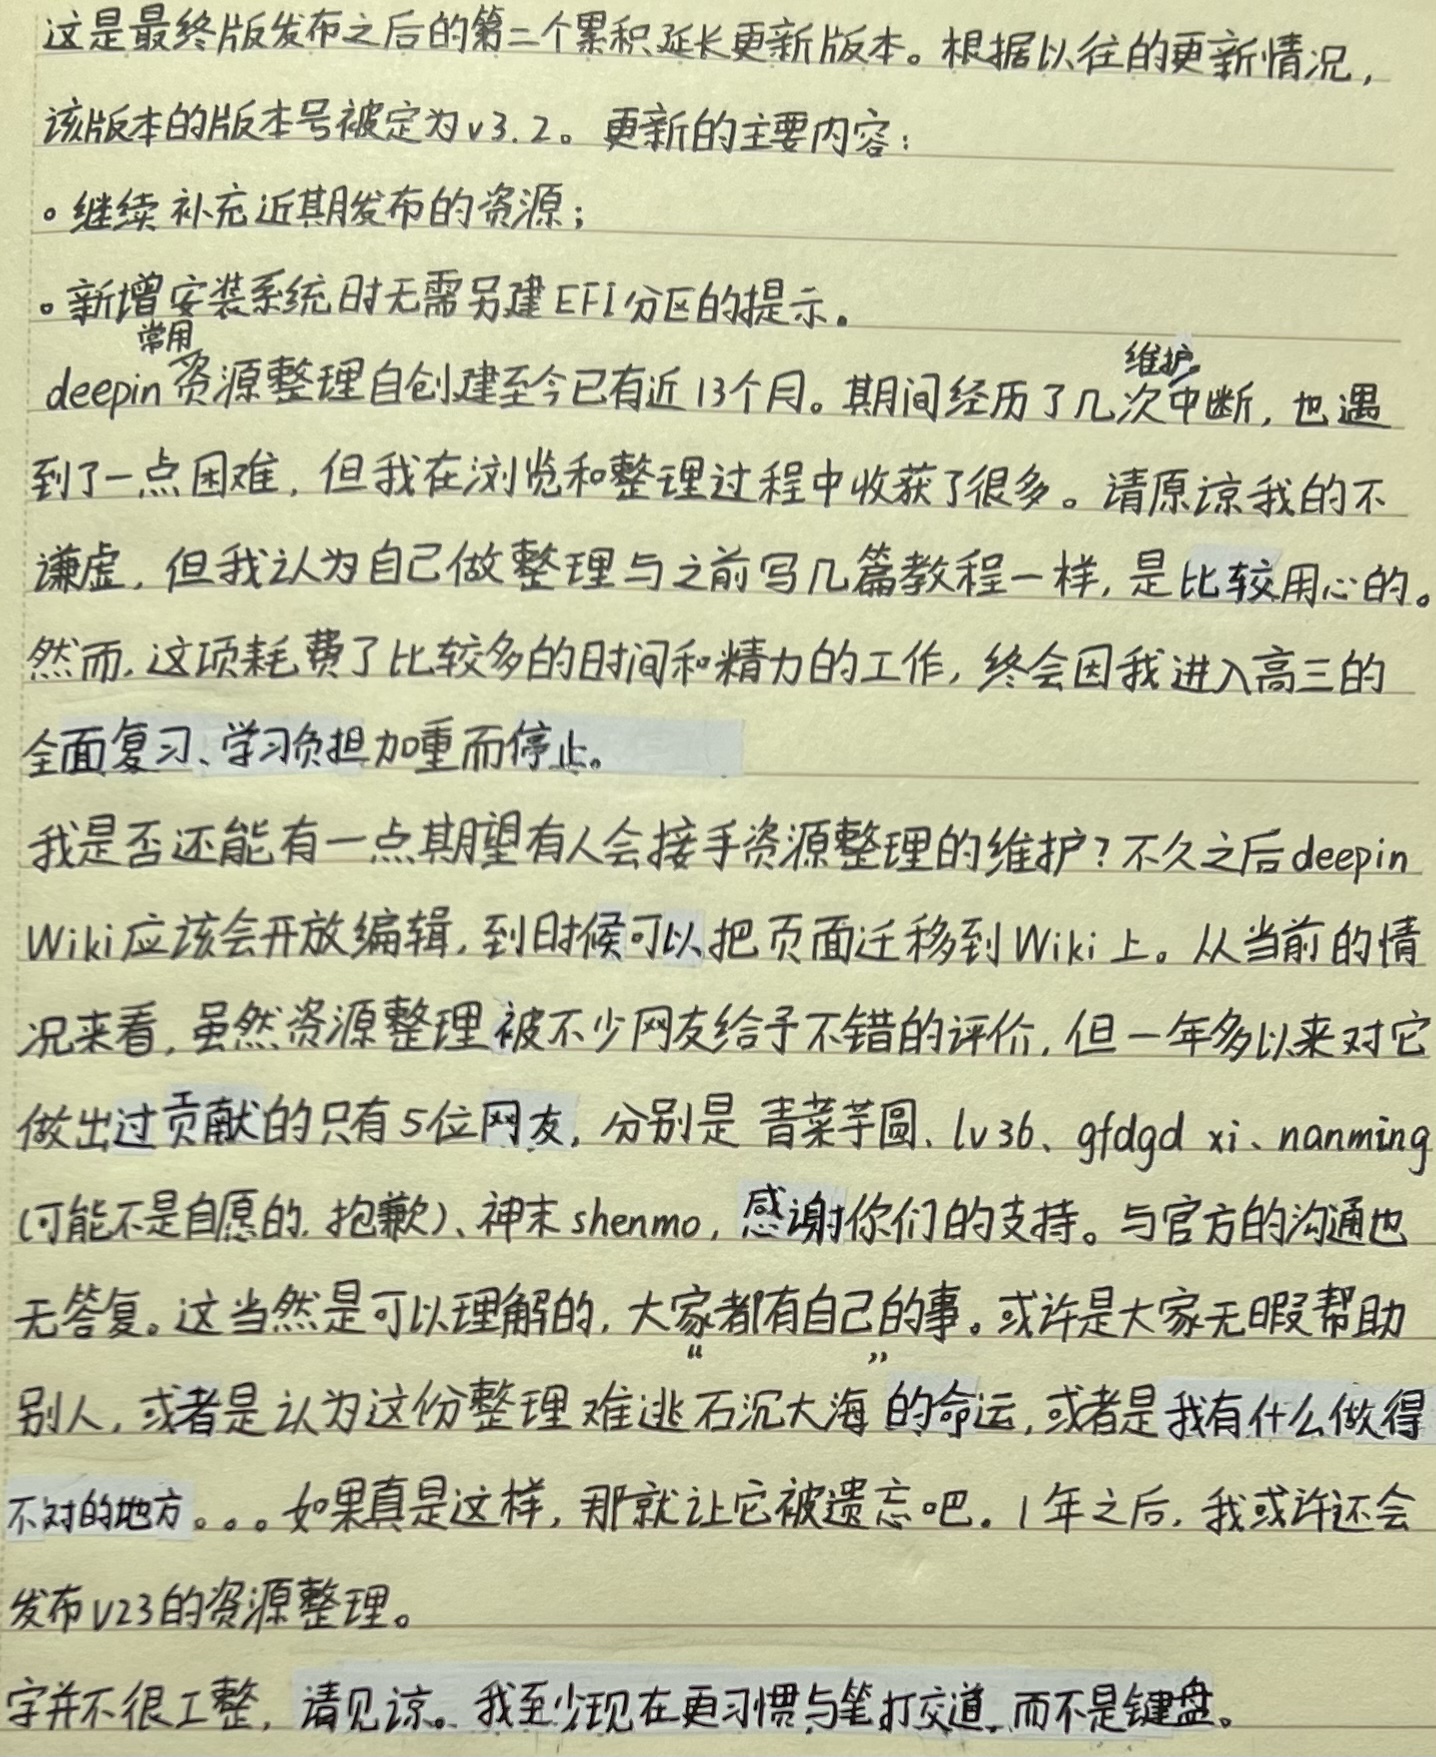 这是最终版发布之后的第二个累积延长更新版本。根据以往的更新情况，
该版本的版本号被定为v3.2。更新的主要内容：
。继续补充近期发布的资源；
。新增安装系统时无需另建EFI分区的提示。
常用
维护
deepin资源整理自创建至今已有近13个月。期间经历了几次中断，也遇
到了一点困难，但我在浏览和整理过程中收获了很多。请原谅我的不
谦虚，但我认为自己做整理与之前写几篇教程一样，是比较用心的。
然而，这项耗费了比较多的时间和精力的工作，终会因我进入高三的
全面复习、学习负担加重而停止。
我是否还能有一点期望有人会接手资源整理的维护？不久之后deepin
Wiki应该会开放编辑，到时候可以把页面迁移到Wiki上。从当前的情
况来看，虽然资源整理被不少网友给予不错的评价，但一年多以来对它
做出过贡献的只有5位网友，分别是 青菜芋圆、lv36、gfdgd xi、nanming
(可能不是自愿的，抱歉)、神末shenmo，感谢你们的支持。与官方的沟通也
无答复。这当然是可以理解的，大家都有自己的事。或许是大家无暇帮助
别人，或者是认为这份整理难逃“石沉大海”的命运，或者是我有什么做得
不对的地方。。。如果真是这样，那就让它被遗忘吧。1年之后，我或许还会
发布V23的资源整理。
字并不很工整，请见谅。我至少现在更习惯与笔打交道，而不是键盘。